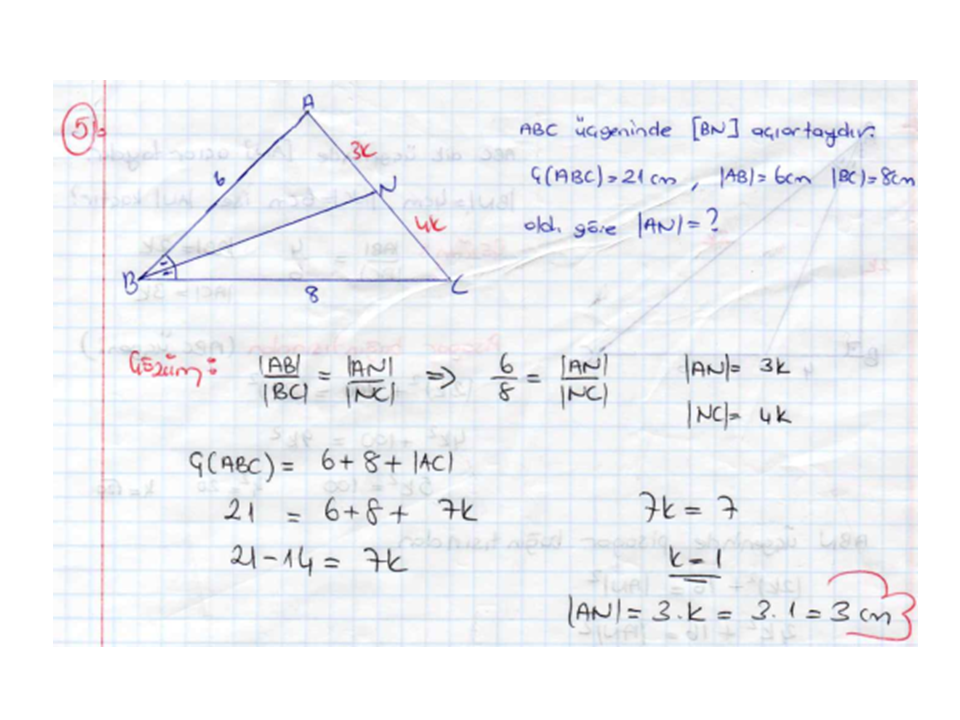 5)
A
6
3k
N
4k
B
8
C
ABC üçgeninde [BN] açıortaydır.
Ç(ABC) = 21 cm , |AB| = 6cm |BC| = 8cm
old. göre |AN| = ?
Çözüm: |AB|/|BC| = |AN|/|NC| ⇒ 6/8 = |AN|/|NC| |AN| = 3k
|NC| = 4k
Ç(ABC) = 6 + 8 + |AC|
21 = 6 + 8 + 7k 7k = 7
21 - 14 = 7k k = 1
|AN| = 3.k = 3.1 = 3 cm